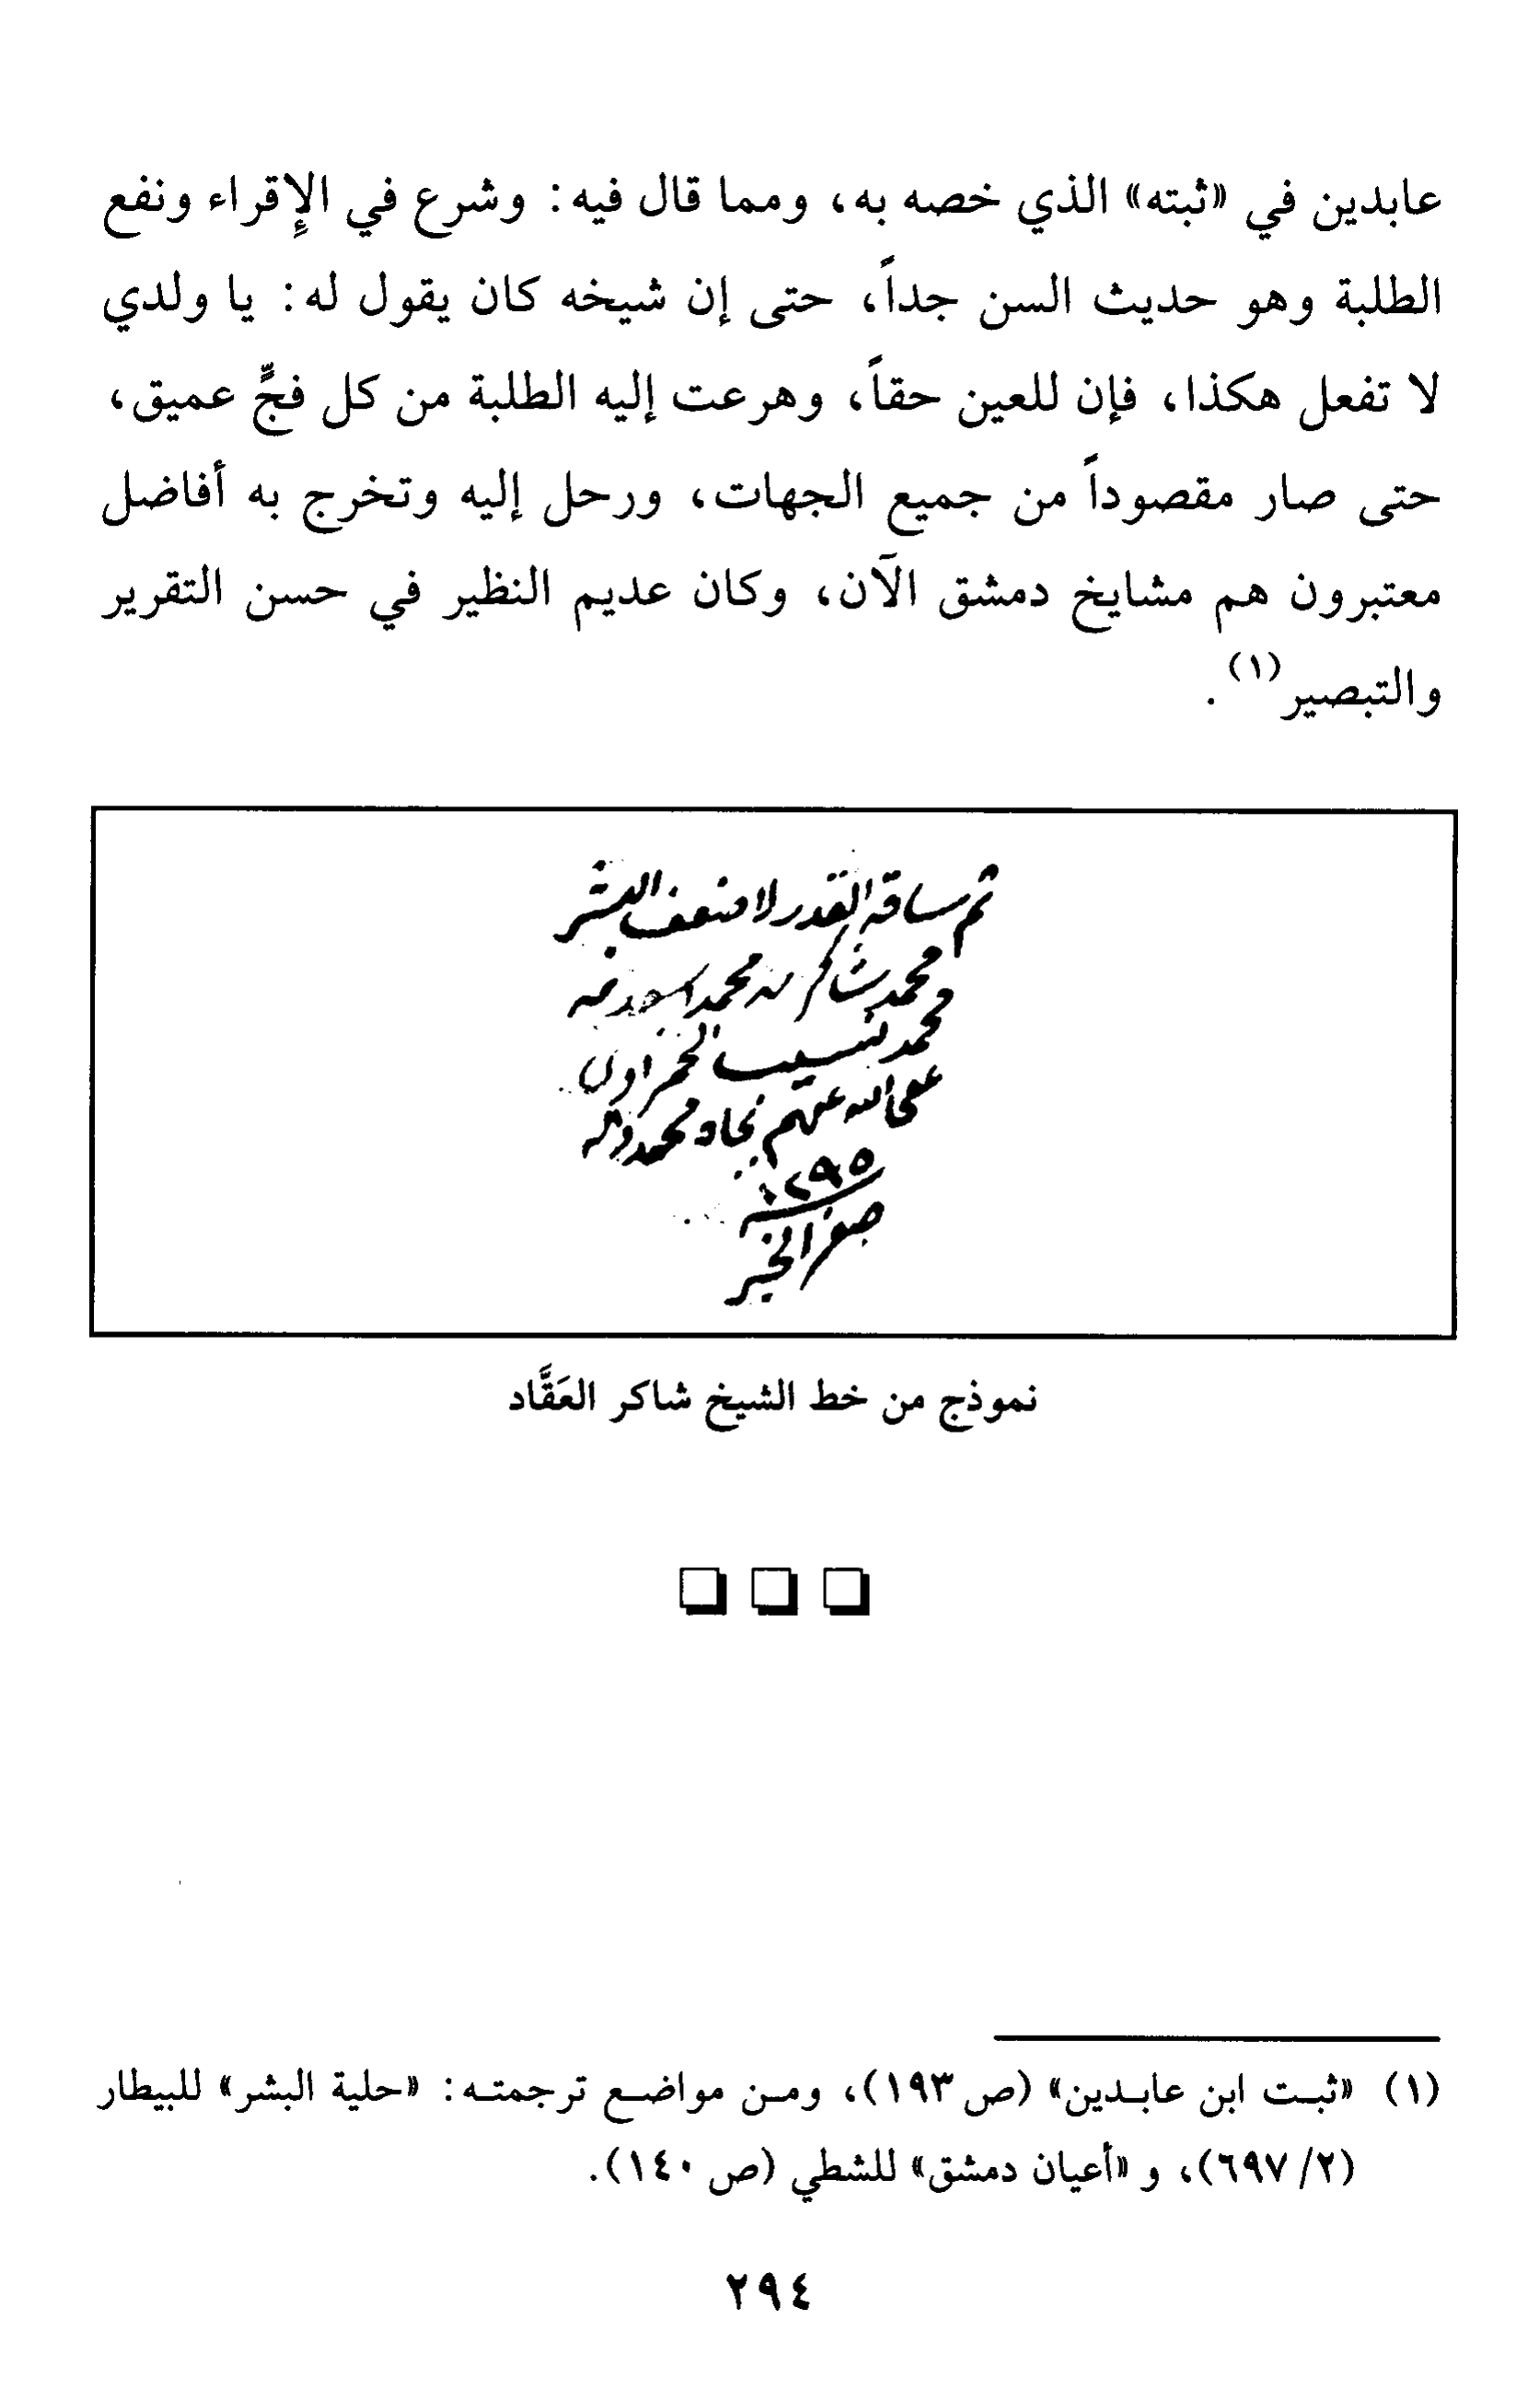 عابدين في «ثبته» الذي خصه به، ومما قال فيه: وشرع في الإِقراء ونفع
الطلبة وهو حديث السن جداً، حتى إن شيخه كان يقول له: يا ولدي
لا تفعل هكذا، فإن للعين حقاً، وهرعت إليه الطلبة من كل فجٍّ عميق،
حتى صار مقصوداً من جميع الجهات، ورحل إليه وتخرج به أفاضل
معتبرون هم مشايخ دمشق الآن، وكان عديم النظير في حسن التقرير
والتبصير(١).
ثم ساقه القدر لاضعف البشر
محمد شاكر
محمد نسيب الحمزاوي
عفى الله عنهم بجاه محمد وآله
صفر الخير
نموذج من خط الشيخ شاكر العَقَّاد
(١) «ثبت ابن عابدين» (ص ١٩٣)، ومن مواضع ترجمته: «حلية البشر» للبيطار
(٢/ ٦٩٧)، و «أعيان دمشق» للشطي (ص ١٤٠).
٢٩٤